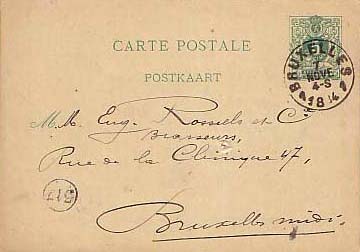 CARTE POSTALE
POSTKAART
BRUXELLES
7
NOVE
4-S
M.M. Eug. Rossels et C.
Brasseurs,
Rue de la Clinique 47,
Bruxelles midi.